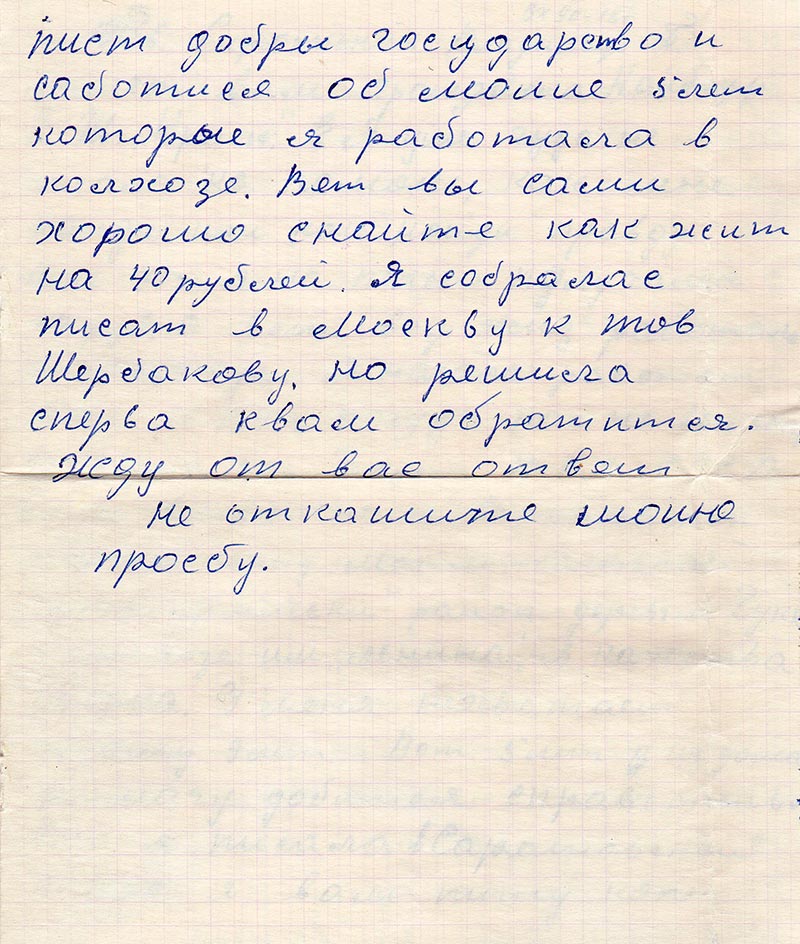 пист добры государство и
саботися об моние 5 лет
которые я работала в
колхозе. Вет вы сами
хорошо снайте как жит
на 40 рублей. Я собралас
писат в Москву к тов
Шербакову, но решила
сперва квам обратится.
Жду от вас отвеш
не откашите моию
просбу.